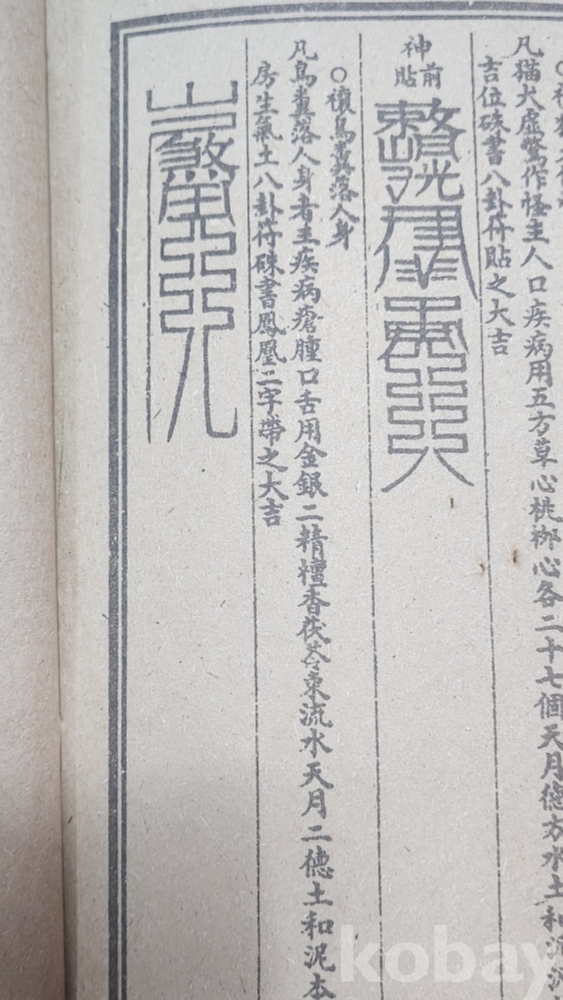 凡猫犬虛驚作怪主人口疾病用五方草心桃柳心各二十七個天月德方水土和泥
吉位硃書八卦符貼之大吉
神前貼
○禳鳥糞落人身
凡鳥糞落人身者主疾病瘡腫口舌用金銀二精檀香茯苓東流水天月二德土和泥本
房生氣土八卦符硃書鳳凰二字帶之大吉
kobay